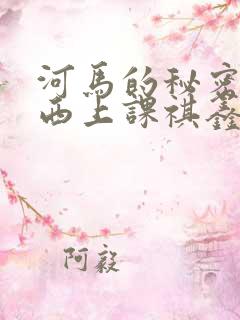 河馬的秘密
西上課祺鑫
阿毅